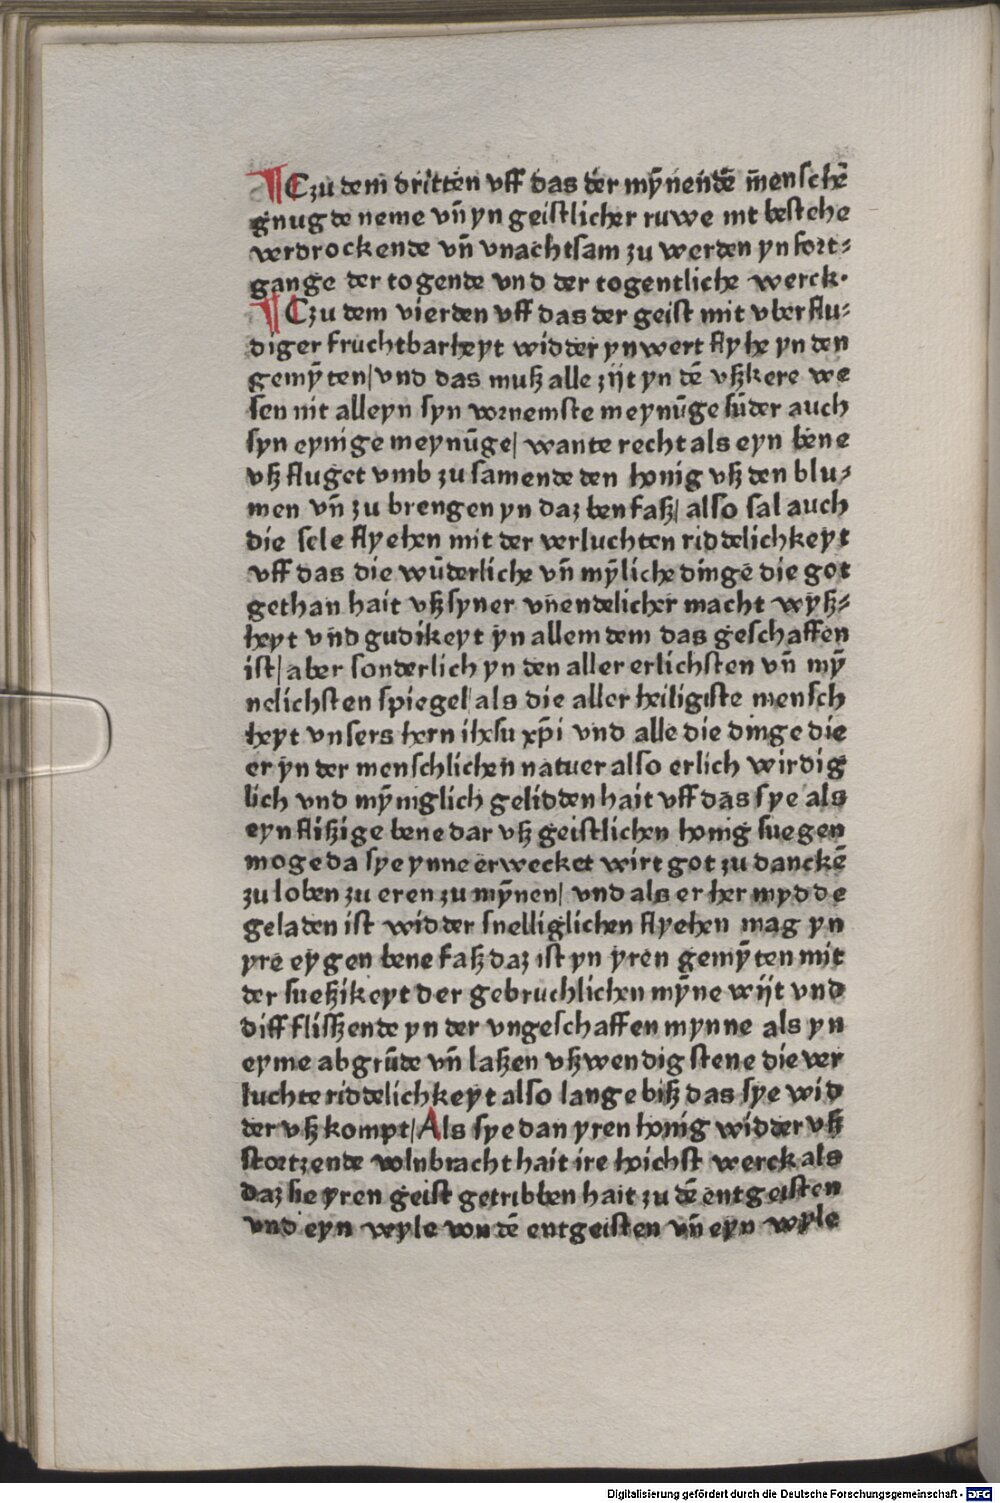 ¶ Czu dem dritten vff das der mȳnendē m̄enschē
gnug de neme vn̄ yn geistlicher ruwe nit bestehe
verdrockende vn̄ vnachtsam zu werden yn fort⸗
gange der togende vnd der togentliche werck.
¶ Czu dem vierden vff das der geist mit vberflu⸗
diger fruchtbarheyt widder ynwert flyhe yn den
gemȳten/vnd das muß alle zijt yn dē vßkere we
sen nit alleyn syn vornemste meynūge sūder auch
syn eynige meynūge/ wante recht als eyn bene
vß fluget vmb zu samende den honig vß den blu⸗
men vn̄ zu brengen yn daz benfaß/ also sal auch
die sele flyehen mit der verluchten riddelichkeyt
vff das die wūderliche vn̄ mȳliche dinge die got
gethan hait vß syner vnendelicher macht wyß⸗
heyt vnd gudikeyt yn allem dem das geschaffen
ist/ aber sonderlich yn den aller erlichsten vn̄ mȳ
nelichsten spiegel/als die aller heiligiste mensch
heyt vnsers hern ihesu xp̄i vnd alle die dinge die
er yn der menschlichen natuer also erlich wirdig
lich vnd mȳniglich gelidden hait vff das sye als
eyn flißige bene dar vß geistlichen honig suegen
moge da sye ynne erwecket wirt got zu danckē
zu loben zu eren zu mȳnen/ vnd als er her mydde
geladen ist widder snelliglichen flyehen mag yn
yre eygen bene faß daz ist yn yren gemȳten mit
der sueßikeyt der gebruchlichen mȳne wijt vnd
diff flißende yn der vngeschaffen mynne als yn
eyme abgrūde vn̄ laßen vßwendig stene die ver
luchte riddelichkeyt also lange biß das sye wid
der vß kompt/Als sye dan yren honig widder vß
stortzende volnbracht hait ire hoichst werck als
daz sie yren geist getribben hait zu dē entgeisten
vnd eyn weyle von dē entgeisten vn̄ eyn wyle
Digitalisierung gefördert durch die Deutsche Forschungsgemeinschaft - DFG